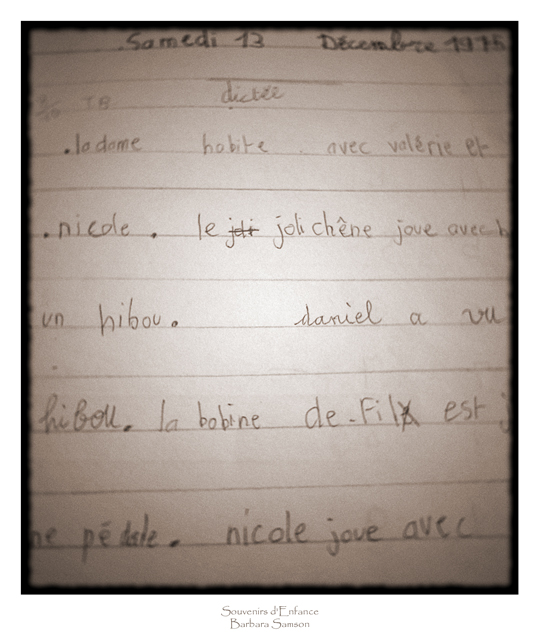 Samedi 13 Décembre 1975
TB dictée
.la dame habite . avec valérie et
.nicole . le joli chêne joue avec
un hibou. daniel a vu
hibou. la bobine de fil est
ne pédale. nicole joue avec
Souvenirs d'Enfance
Barbara Samson